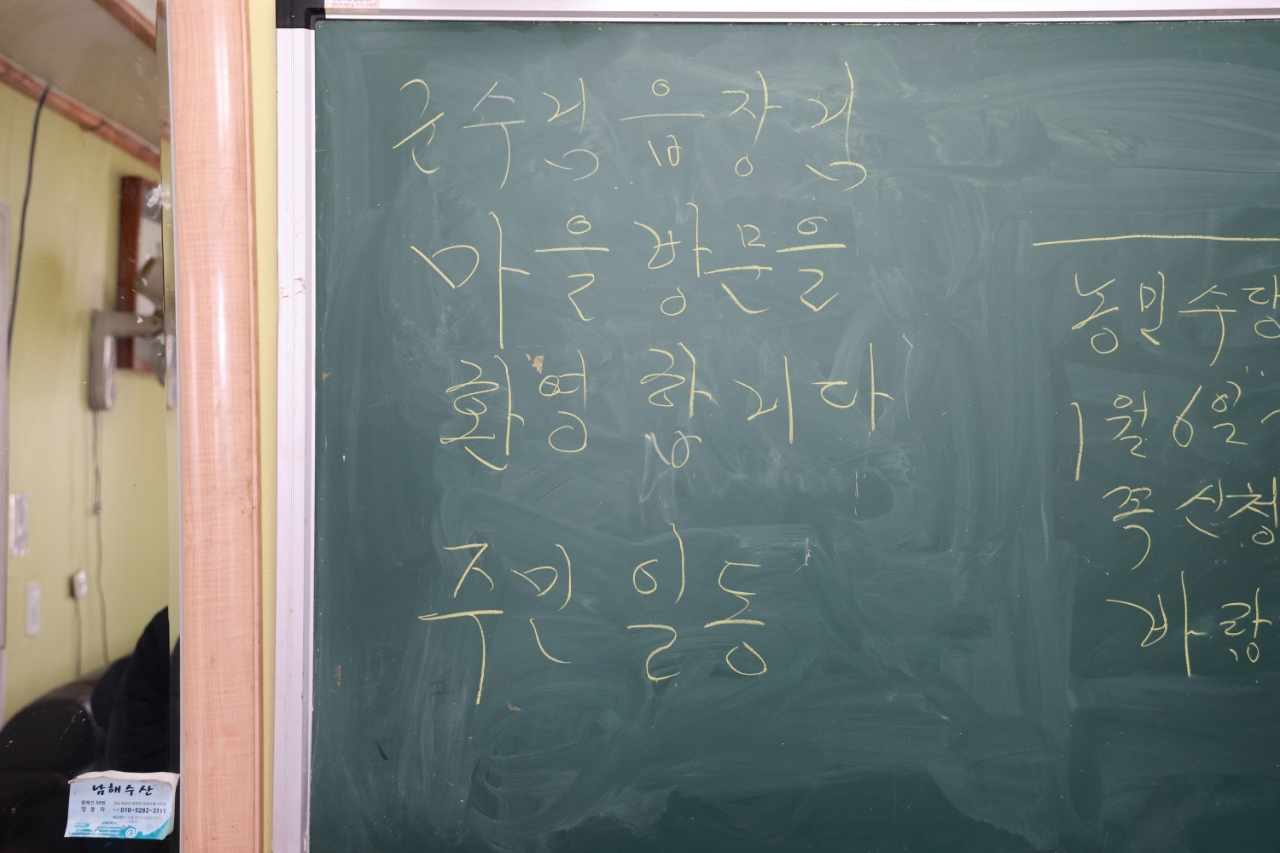 군수님 읍장님
마을 방문을
환영 합니다
주민 일동
농민수당
1월 6일
꼭 신청
바랍
남해수산
010-5282-3111